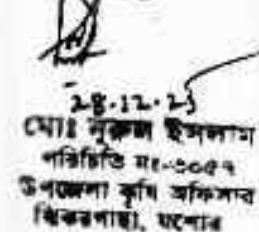 28.12.23
মোঃ নূরুল ইসলাম
পরিচিতি নং-৩০৫৭
উপজেলা কৃষি অফিসার
ঝিকরগাছা, যশোর